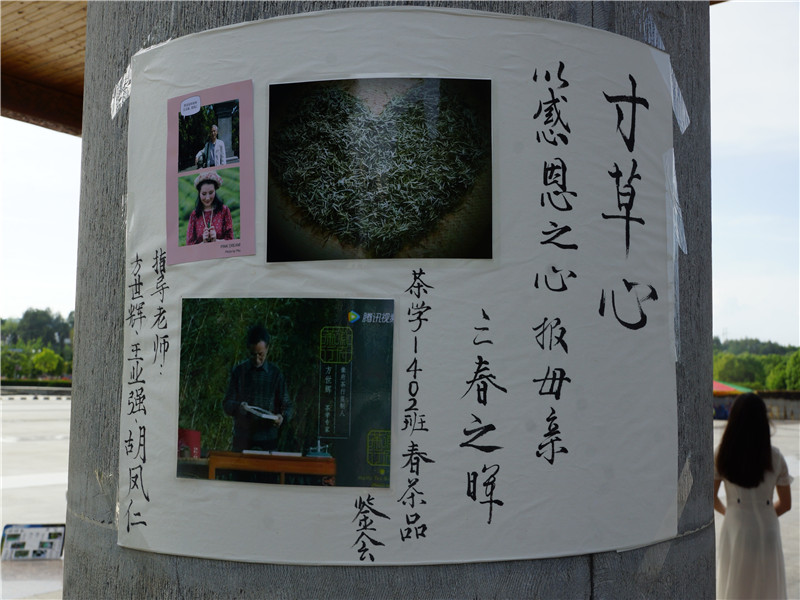 寸草心
以感恩之心报母亲
三春之晖
茶学1402班春茶品
鉴会
指导老师:
方世辉、王业强、胡凤仁
腾讯视频
方世辉 茶学专家
PINK DREAM